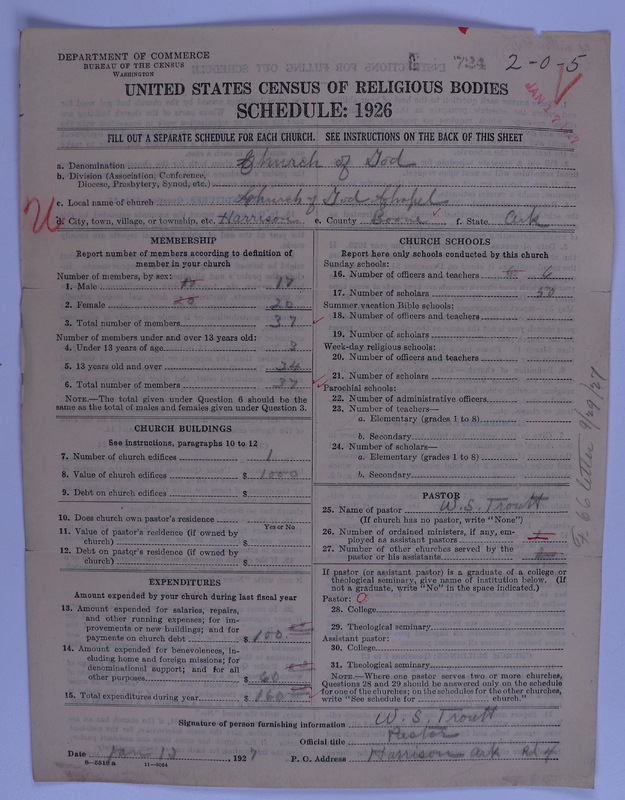 DEPARTMENT OF COMMERCE
BUREAU OF THE CENSUS
WASHINGTON
724
2-0-5
UNITED STATES CENSUS OF RELIGIOUS BODIES
SCHEDULE: 1926
FILL OUT A SEPARATE SCHEDULE FOR EACH CHURCH. SEE INSTRUCTIONS ON THE BACK OF THIS SHEET
a. Denomination Church of God
b. Division (Association, Conference, Diocese, Presbytery, Synod, etc.)
c. Local name of church Church of God Chapel
d. City, town, village, or township, etc. Harrison e. County Boone f. State Ark
MEMBERSHIP
Report number of members according to definition of member in your church
Number of members, by sex:
1. Male 17
2. Female 20
3. Total number of members 37
Number of members under and over 13 years old:
4. Under 13 years of age 3
5. 13 years old and over 34
6. Total number of members 37
NOTE.—The total given under Question 6 should be the same as the total of males and females given under Question 3.
CHURCH BUILDINGS
See instructions, paragraphs 10 to 12
7. Number of church edifices 1
8. Value of church edifices $ 1000
9. Debt on church edifices $
10. Does church own pastor's residence
Yes or No
11. Value of pastor's residence (if owned by church) $
12. Debt on pastor's residence (if owned by church) $
EXPENDITURES
Amount expended by your church during last fiscal year
13. Amount expended for salaries, repairs, and other running expenses; for improvements or new buildings; and for payments on church debt $ 100
14. Amount expended for benevolences, including home and foreign missions; for denominational support; and for all other purposes $ 60
15. Total expenditures during year $ 160
CHURCH SCHOOLS
Report here only schools conducted by this church
Sunday schools:
16. Number of officers and teachers 6
17. Number of scholars 50
Summer vacation Bible schools:
18. Number of officers and teachers
19. Number of scholars
Week-day religious schools:
20. Number of officers and teachers
21. Number of scholars
Parochial schools:
22. Number of administrative officers
23. Number of teachers—
a. Elementary (grades 1 to 8)
b. Secondary
24. Number of scholars—
a. Elementary (grades 1 to 8)
b. Secondary
PASTOR
25. Name of pastor W. S. Troutt
(If church has no pastor, write "None")
26. Number of ordained ministers, if any, employed as assistant pastors
27. Number of other churches served by the pastor or his assistants
If pastor (or assistant pastor) is a graduate of a college or theological seminary, give name of institution below. (If not a graduate, write "No" in the space indicated.)
Pastor:
28. College
29. Theological seminary
Assistant pastor:
30. College
31. Theological seminary
NOTE.—Where one pastor serves two or more churches, Questions 28 and 29 should be answered only on the schedule for one of the churches; on the schedules for the other churches, write "See schedule for church."
Signature of person furnishing information W. S. Troutt
Official title Pastor
Date Jan 13, 1927 P. O. Address Harrison Ark
8-5519a 11-9064
66 letter 9/29/27